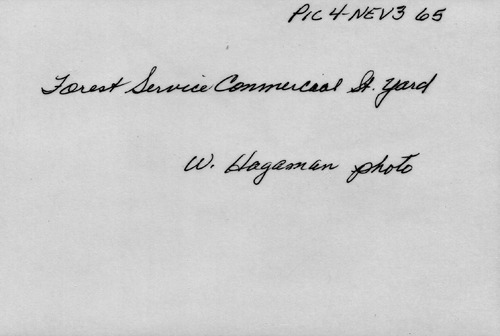 PIC 4-NEV3 65
Forest Service Commercial St. Yard
W. Hagaman photo